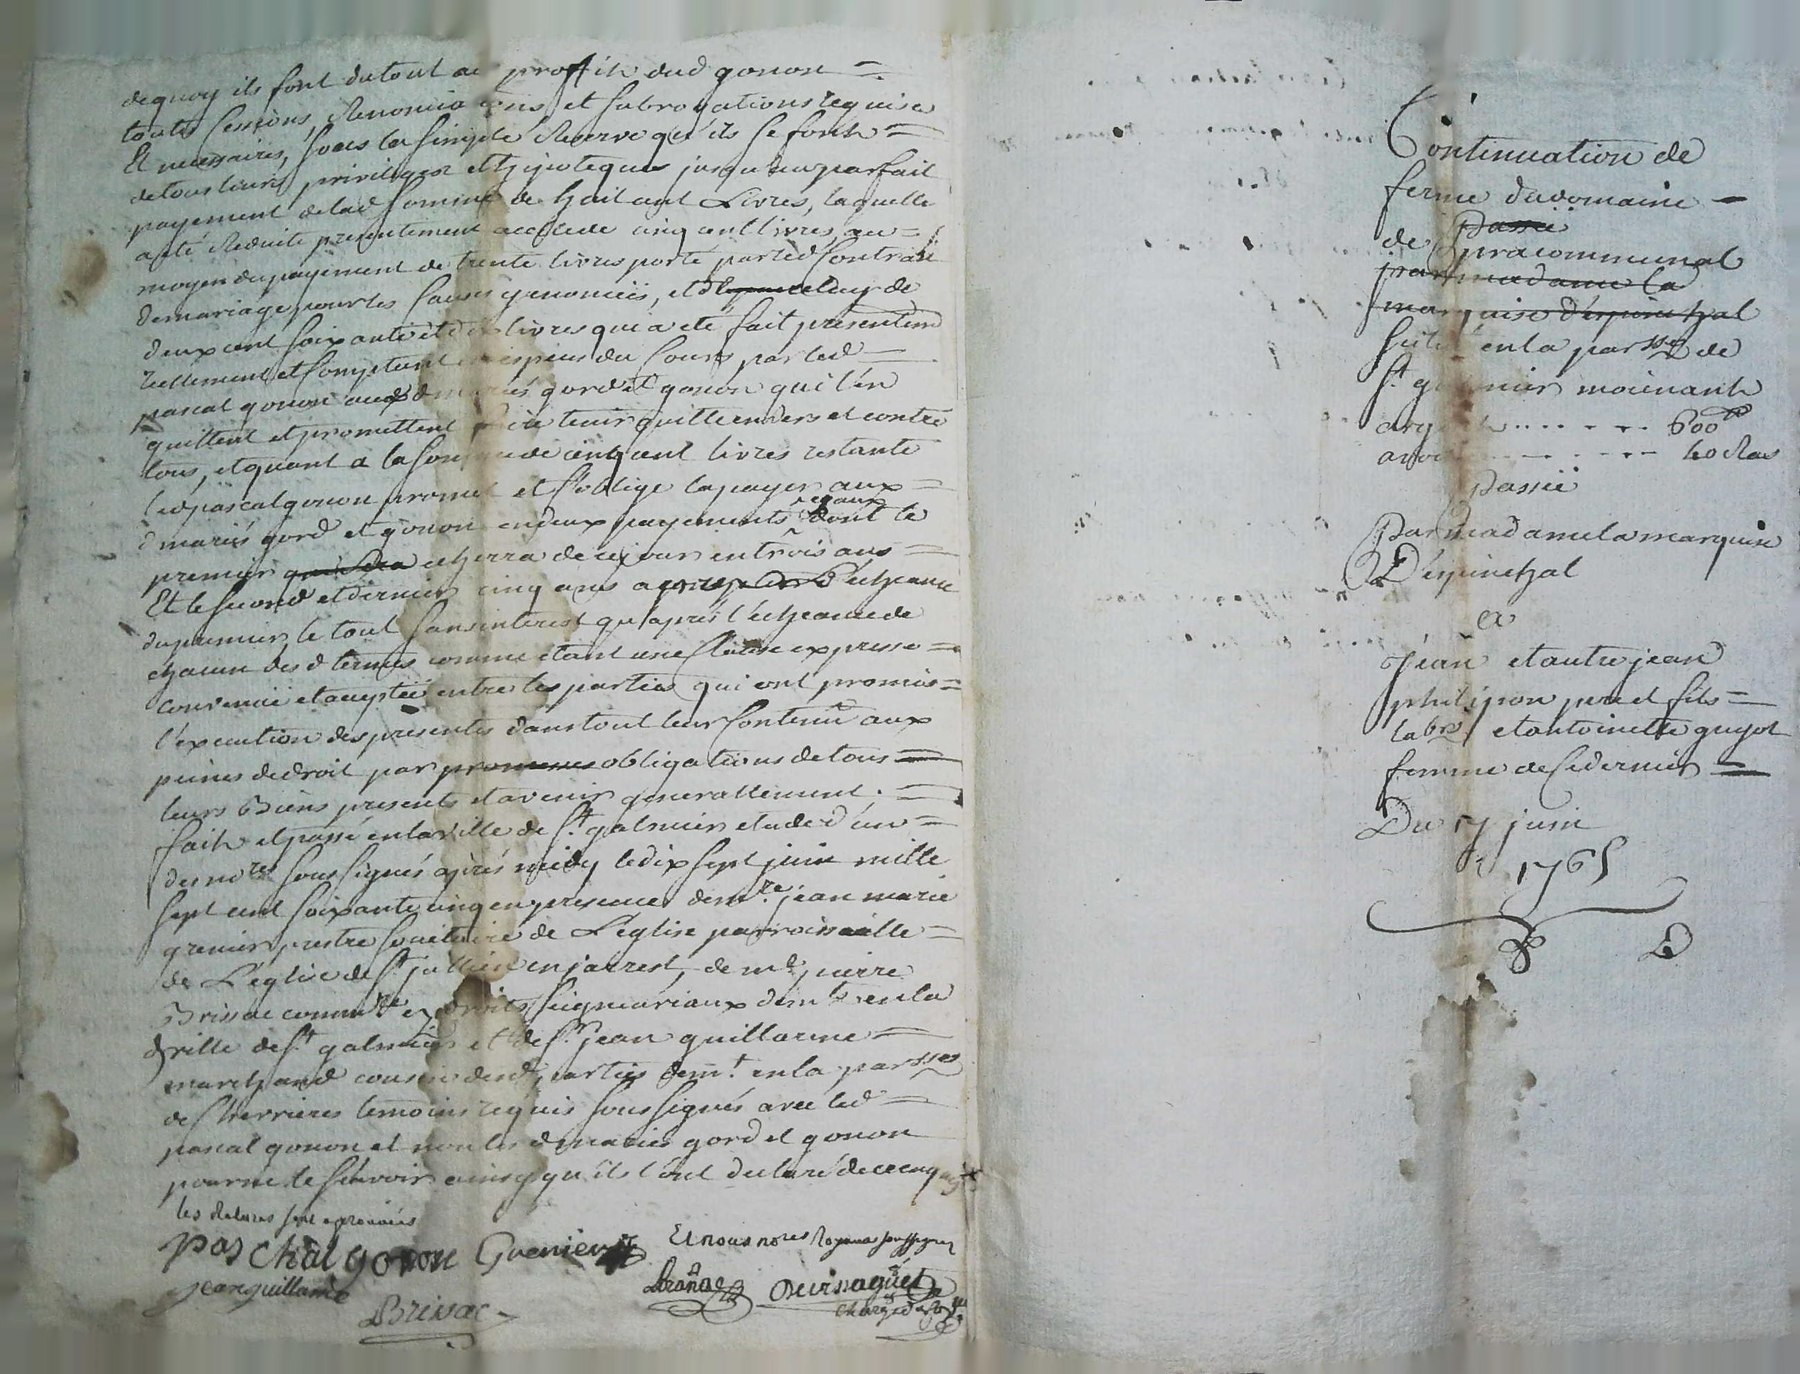 dequoy ils font du tout au proffit dud gonon
toutes cessions, Renonciations et subrogations requises
Et necessaires, sous la simple Reserve qu'ils se font
de tous leurs privileges et hipoteques jusqu'au parfait
payement de lad somme de huit cent Livres, laquelle
a été Reduite presentement a celle de cinq cent livres, au
moyen du payement de trente livres porté par led Contrat
de mariage, pour les causes y enoncéës, et de celuy de
deux cent soixante et dix livres qui a eté fait presentemt
reellement et Comptant en especes du Cours par led
pascal gonon auxd mariés gord et gonon qui l'en
quittent et promettent faire tenir quitte envers et contre
tous, et quant a la somme de cinq cent livres restante
led pascal gonon promet et s'oblige la payer aux
d mariés gord et gonon en deux payements egaux dont le
premier echerra de ce jour en trois ans
Et le second et dernier cinq ans a l'echeance
du premier, le tout sans interest qu'aprés l'echeance de
chacun des d termes comme etant une Clause expresse
convenuë et acceptéë entre les parties qui ont promis
l'execution des presentes dans tout leur Contenu aux
peines de droit par obligations de tous
leurs Biens presents et avenir generallement.
fait et passé en la ville de st galmier etude d'un
des nores soussignés aprés midy le dix sept juin mille
sept cent soixante cinq en presence de mre jean marie
grenier prestre societaire de L'église parroissialle
de L'église de st jullien en jarrest, de me pierre
Brissac commre ez droits seigneuriaux demt en la
d ville de st galmier et de sr jean guillarme
marchand cousin desd parties demt en la parsse
de Cherrieres temoins requis soussignés avec led
pascal gonon et non les d mariés gord et gonon
pour ne le sçavoir ainsy qu'ils l'ont declaré de ce enquis
les Ratures sont aprouvées
paschal gonon Grenier
Et nous nores Royaux soussignes
jean guillarme
Brissac
Continuation de
ferme du domaine
de Passéë
pracommunal
par madame la
marquise d'espinchal
scitué en la parsse de
st galmier moienant
argent 600tt
avoine 40 Ras
Passéë
Par madame la marquise
D'espinchal
a
Jean et autre jean
philipon pere et fils
labrs et antoinette guyot
femme de ce dernier
Du 17 juin
1765